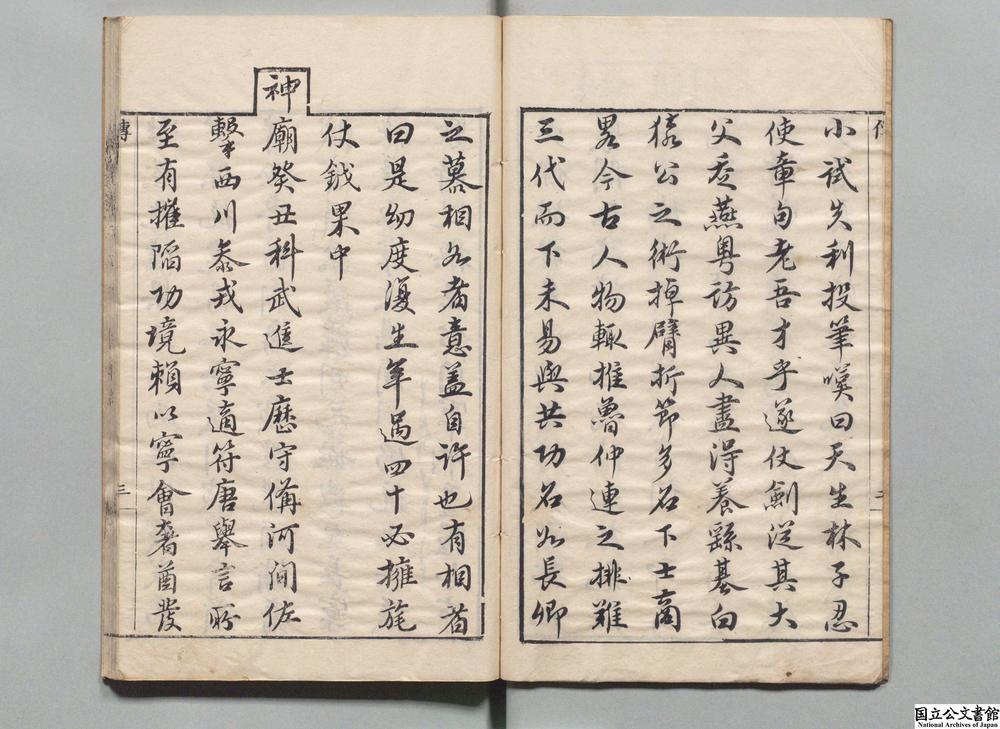 小試失利投筆嘆曰天生林子忍
使章句老吾才乎遂仗劍從其大
父走燕粵訪異人盡得養繇基白
猿公之術掉臂折節多名下士商
畧今古人物輒推魯仲連之排難
三代而下未易與共功名如長卿
之慕相如者意盖自許也有相者
曰是幼度復生年過四十必擁旄
仗鉞果中
神
廟癸丑科武進士歷守備河間佐
擊西川叅戎永寧適符唐舉言所
至有摧陥功境賴以寧會奢酋發
傳
三
国立公文書館
National Archives of Japan